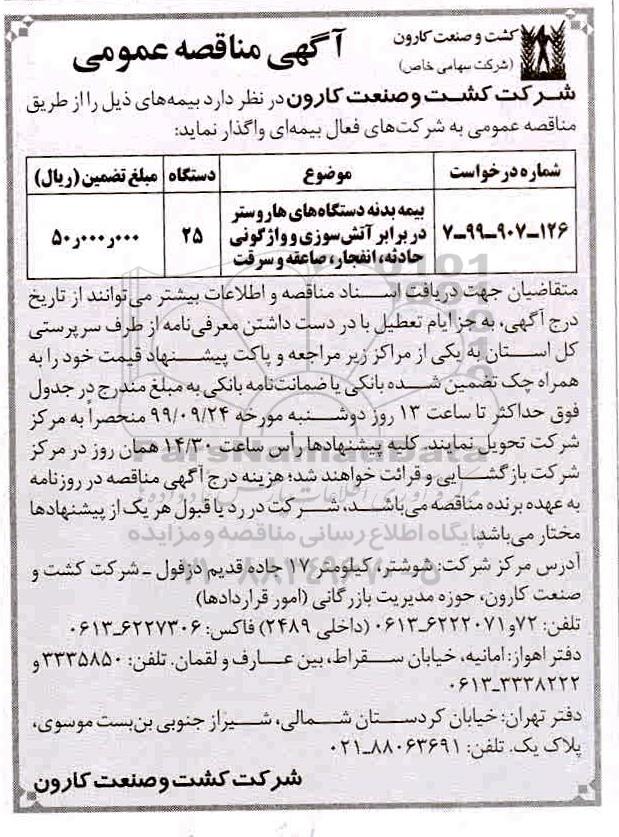 کشت و صنعت کارون
(شرکت سهامی خاص)
آگهی مناقصه عمومی
شرکت کشت و صنعت کارون در نظر دارد بیمه‌های ذیل را از طریق
مناقصه عمومی به شرکت‌های فعال بیمه‌ای واگذار نماید:
شماره درخواست موضوع دستگاه مبلغ تضمین (ریال)
۷ـ۹۹ـ۹۰۷ـ۱۲۶ بیمه بدنه دستگاه‌های هاروستر ۲۵ ۵۰٫۰۰۰٫۰۰۰
در برابر آتش‌سوزی و واژگونی
حادثه، انفجار، صاعقه و سرقت
متقاضیان جهت دریافت اسناد مناقصه و اطلاعات بیشتر می‌توانند از تاریخ
درج آگهی، به جز ایام تعطیل با در دست داشتن معرفی‌نامه از طرف سرپرستی
کل استان به یکی از مراکز زیر مراجعه و پاکت پیشنهاد قیمت خود را به
همراه چک تضمین شده بانکی یا ضمانت‌نامه بانکی به مبلغ مندرج در جدول
فوق حداکثر تا ساعت ۱۳ روز دوشنبه مورخه ۹۹/۰۹/۲۴ منحصراً به مرکز
شرکت تحویل نمایند. کلیه پیشنهادها رأس ساعت ۱۴/۳۰ همان روز در مرکز
شرکت بازگشایی و قرائت خواهند شد؛ هزینه درج آگهی مناقصه در روزنامه
به عهده برنده مناقصه می‌باشد، شرکت در رد یا قبول هر یک از پیشنهادها
مختار می‌باشد.
آدرس مرکز شرکت: شوشتر، کیلومتر ۱۷ جاده قدیم دزفول ـ شرکت کشت و
صنعت کارون، حوزه مدیریت بازرگانی (امور قراردادها)
تلفن: ۷۲و۶۲۲۲۰۷۱ـ۰۶۱۳ (داخلی ۲۴۸۹) فاکس: ۶۲۲۷۳۰۶ـ۰۶۱۳
دفتر اهواز: امانیه، خیابان سقراط، بین عارف و لقمان. تلفن: ۳۳۳۵۸۵۰ و
۳۳۳۸۲۲۲ـ۰۶۱۳
دفتر تهران: خیابان کردستان شمالی، شیراز جنوبی بن‌بست موسوی،
پلاک یک. تلفن: ۸۸۰۶۳۶۹۱ـ۰۲۱
شرکت کشت و صنعت کارون
ParsNamadData
پایگاه اطلاع رسانی مناقصه و مزایده